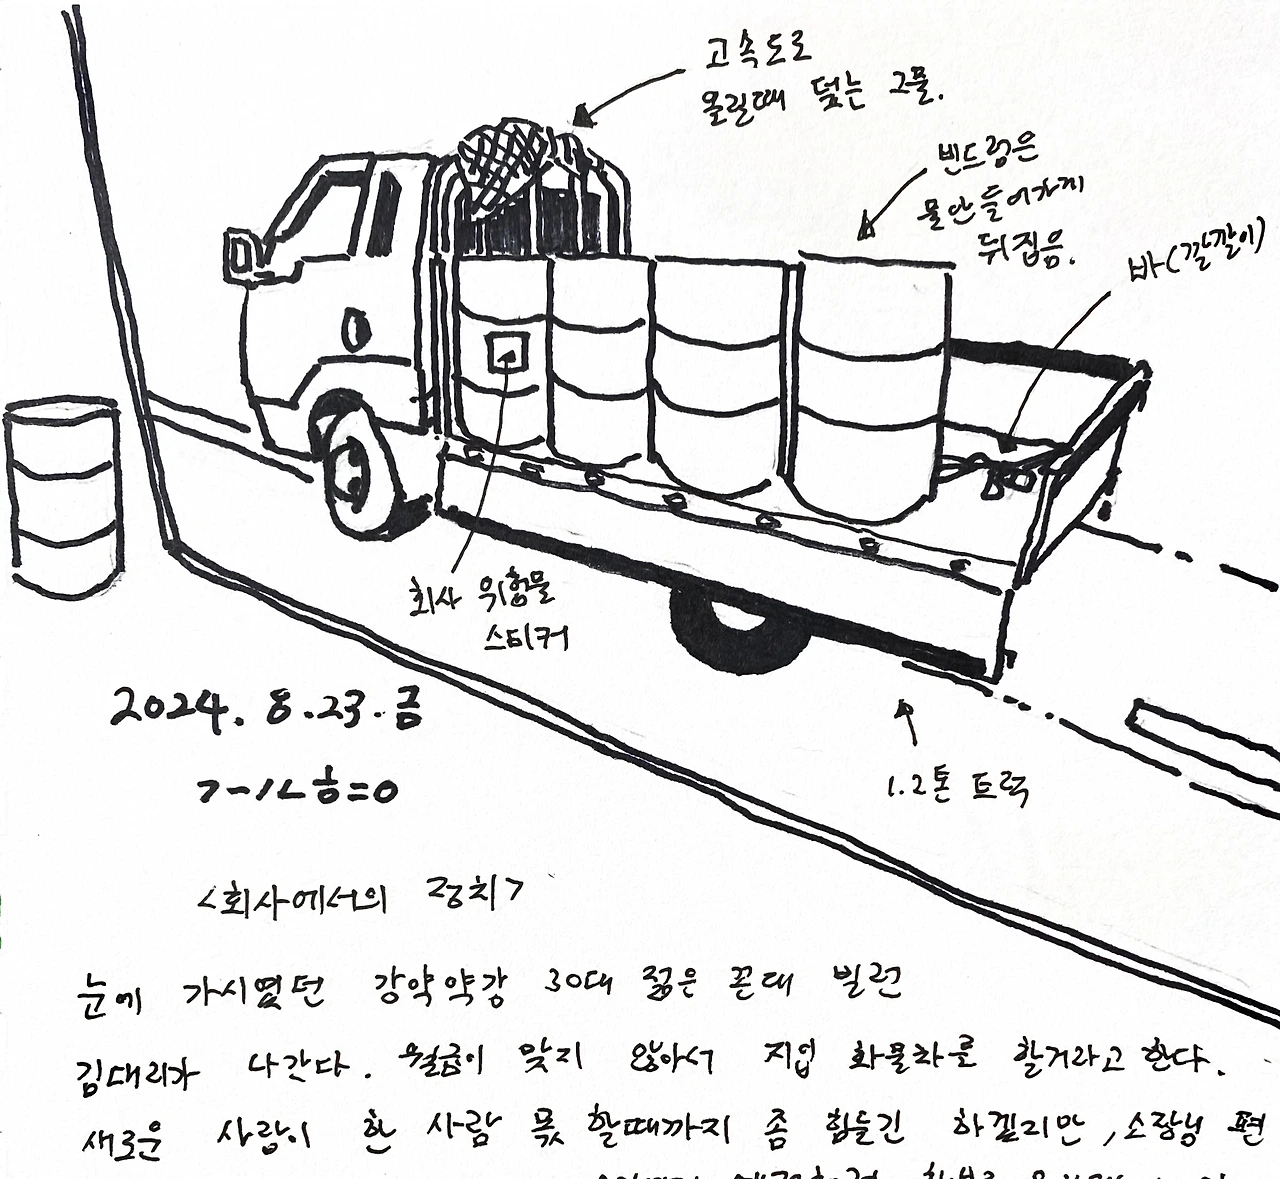 고속도로
올릴때 덮는 그물.
빈드럼은
물안들어가게
뒤집음.
바(깔깔이)
회사 위험물
스티커
2024. 8.23.금
1.2톤 트럭
<회사에서의 정치>
눈에 가시였던 강약약강 30대 젊은 꼰대 빌런
김대리가 나간다. 월급이 맞지 않아서 지입 화물차를 할거라고 한다.
새로운 사람이 한 사람 몫 할때까지 좀 힘들긴 하겠지만, 소장님 편